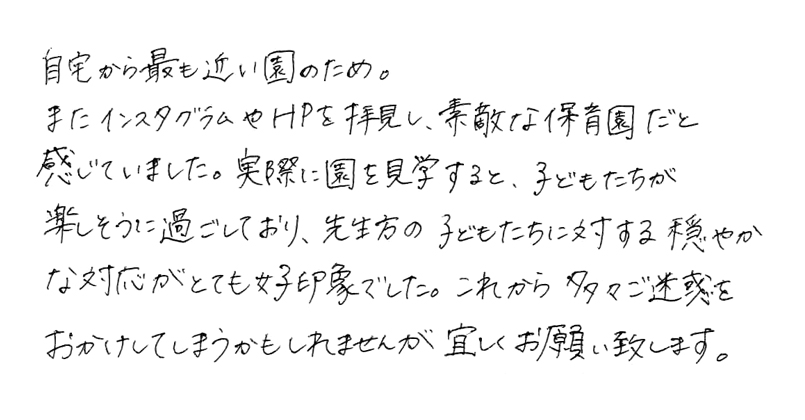 自宅から最も近い園のため。
またインスタグラムやHPを拝見し、素敵な保育園だと
感じていました。実際に園を見学すると、子どもたちが
楽しそうに過ごしており、先生方の子どもたちに対する穏やか
な対応がとても好印象でした。これから多々ご迷惑を
おかけしてしまうかもしれませんが宜しくお願い致します。